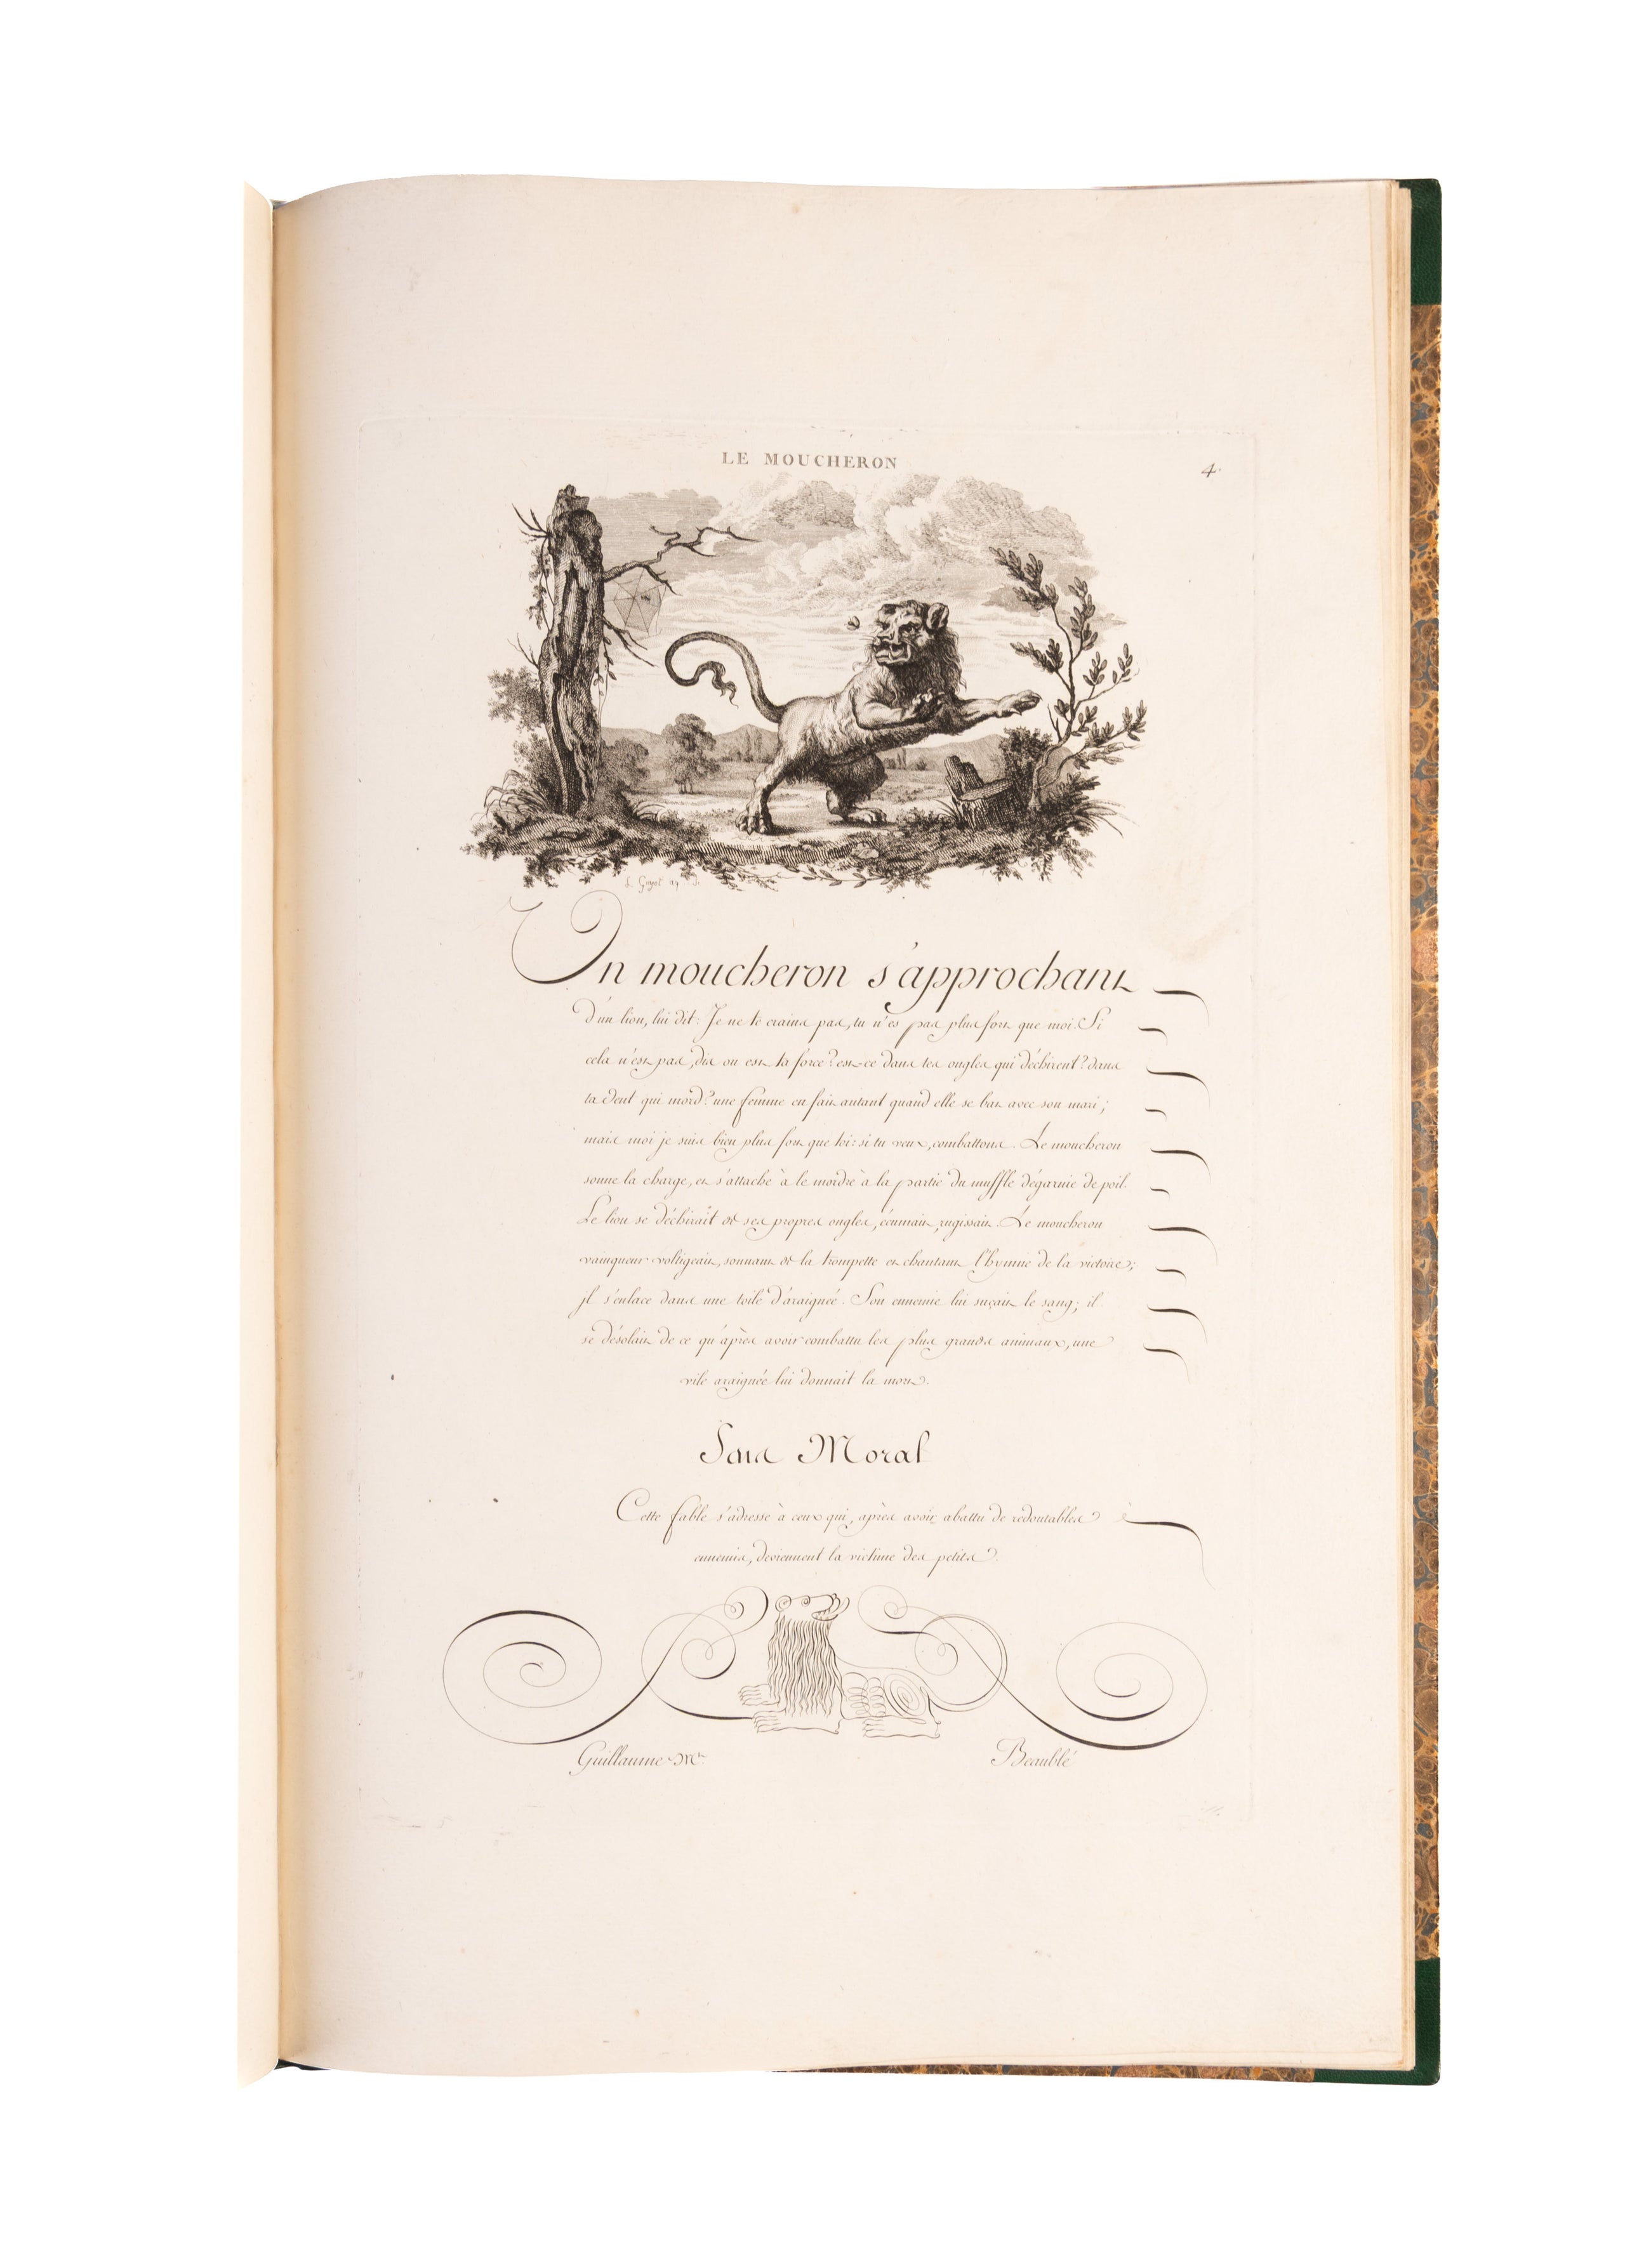 LE MOUCHERON
4.
Un moucheron s'approchant
d'un lion, lui dit: Je ne te crains pas, tu n'es pas plus fort que moi. Si
cela n'est pas, dis ou est ta force? est-ce dans tes ongles qui déchirent? dans
ta dent qui mord? une femme en fait autant quand elle se bat avec son mari;
mais moi je suis bien plus fort que toi: si tu veux, combattons. Le moucheron
sonne la charge, et s'attache à le mordre à la partie du muffle dégarnie de poil.
Le lion se déchirait de ses propres ongles, écumait, rugissait. Le moucheron
vainqueur voltigeait, sonnant de la trompette et chantant l'hymne de la victoire;
il s'enlace dans une toile d'araignée. Son ennemie lui suçait le sang; il
se désolait de ce qu'après avoir combattu les plus grands animaux, une
vile araignée lui donnait la mort.
Sens Moral
Cette fable s'adresse à ceux qui, après avoir abattu de redoutables
ennemis, deviennent la victime des petits.
Guillaume Mr. Beaublé